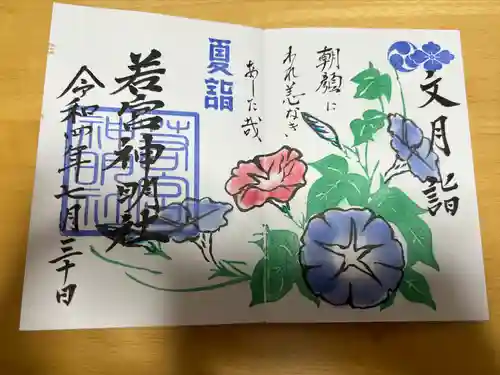 文月詣
朝顔に
われ恙なき
あした哉
夏詣
若宮神明社
令和四年七月三十日